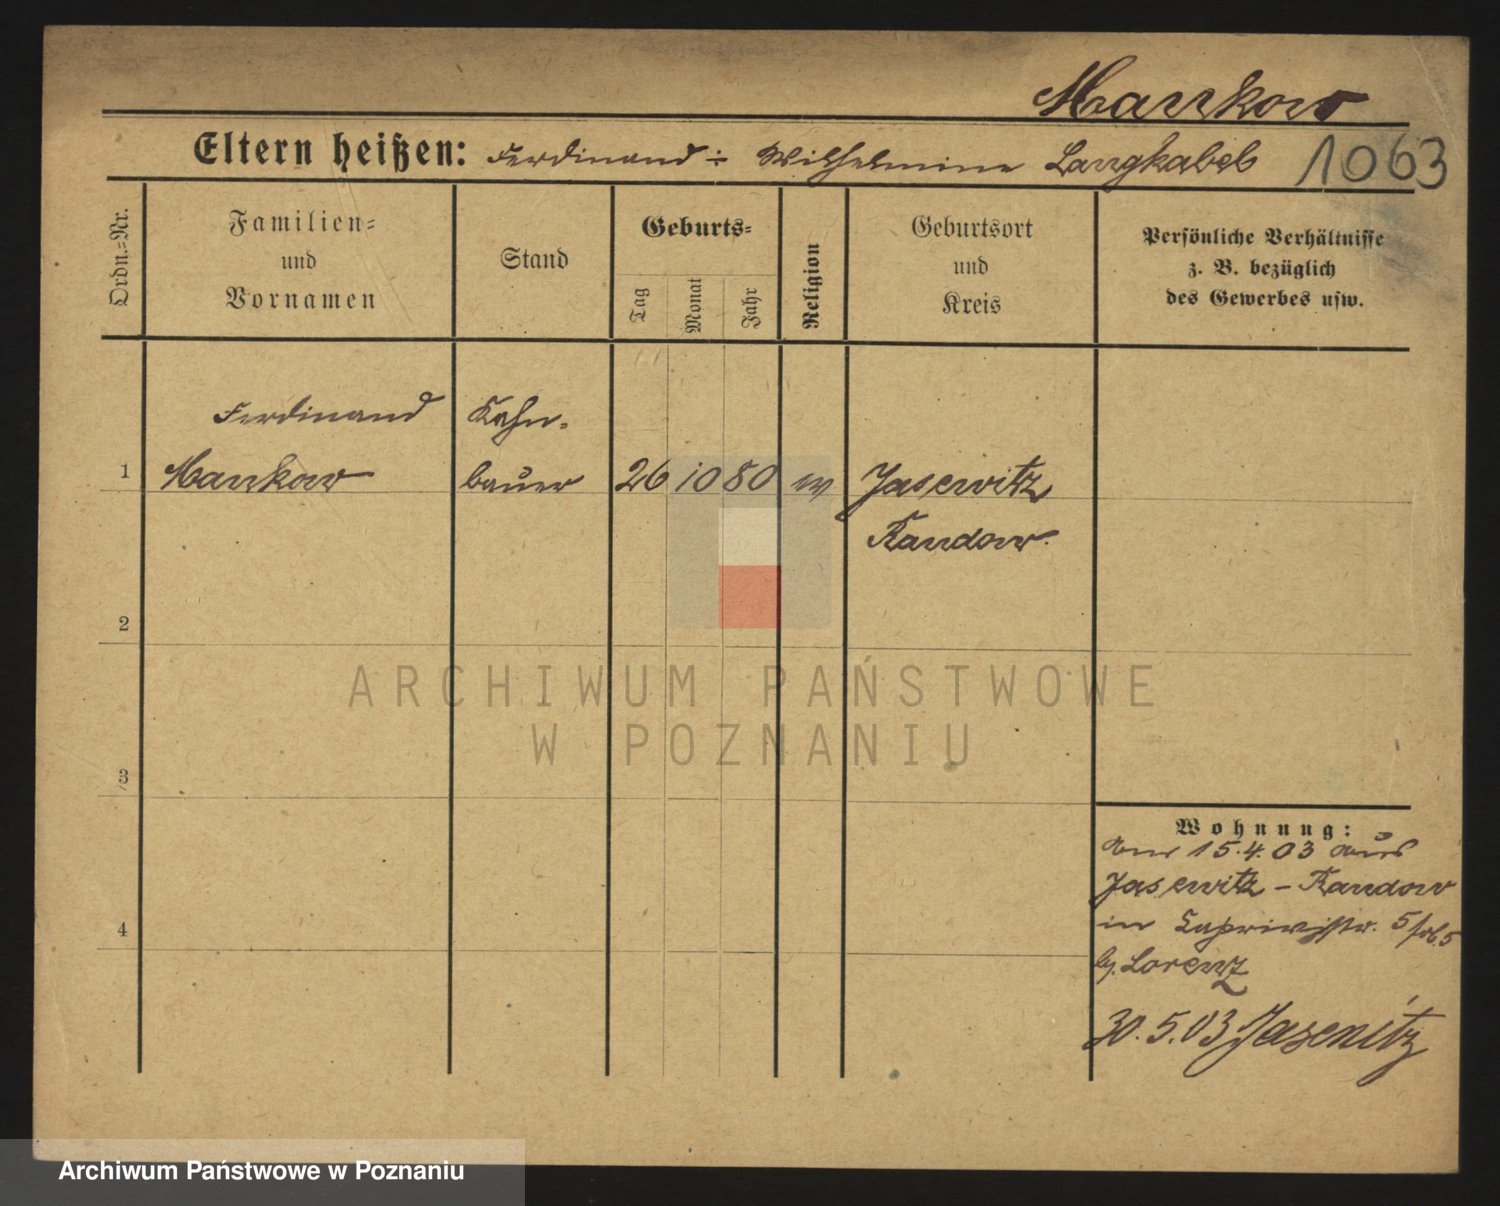 Mankow
Eltern heißen: Ferdinand : Wilhelmine Langkabel 1063
Ordn.-Nr.
Familien-
und
Vornamen
Stand
Geburts-
Tag
Monat
Jahr
Religion
Geburtsort
und
Kreis
Persönliche Verhältnisse
z. B. bezüglich
des Gewerbes usw.
Ferdinand Kahn-
1 Mankow bauer 26 10 80 ev Jasenitz
Randow.
2
3
4
Wohnung:
am 15.4.03 aus
Jasenitz - Randow
in Caprivistr. 5
b/ Lorenz
30.5.03 Jasenitz
ARCHIWUM PAŃSTWOWE
W POZNANIU
Archiwum Państwowe w Poznaniu